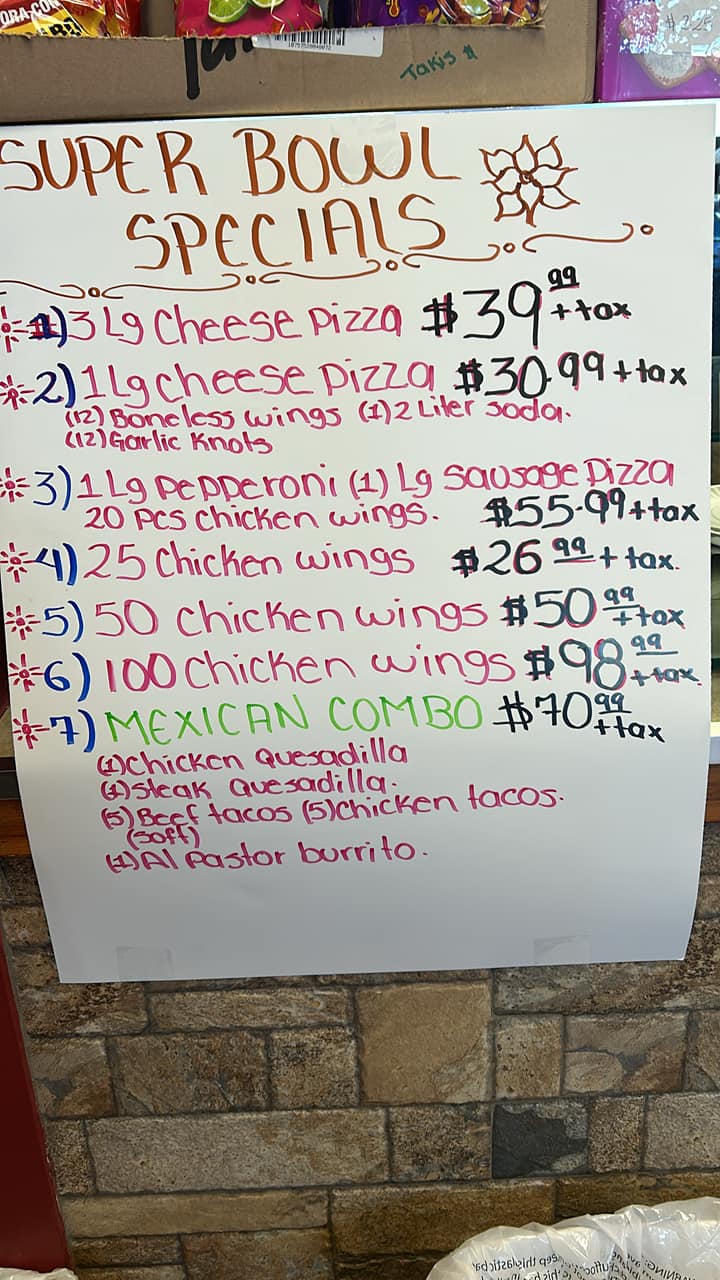 Takis #
SUPER BOWL
SPECIALS
1) 3 Lg Cheese Pizza $39.99 + tax
2) 1 Lg cheese Pizza $30.99 + tax
(12) Boneless wings (1) 2 Liter soda.
(12) Garlic Knots
3) 1 Lg Pepperoni (1) Lg Sausage Pizza
20 Pcs chicken wings. $55.99 + tax
4) 25 Chicken wings $26.99 + tax.
5) 50 chicken wings $50.99 + tax
6) 100 chicken wings $98.99 + tax.
7) MEXICAN COMBO $70.99 + tax
(1) Chicken Quesadilla
(1) Steak Quesadilla.
(5) Beef tacos (5) Chicken tacos.
(Soft)
(1) Al Pastor burrito.